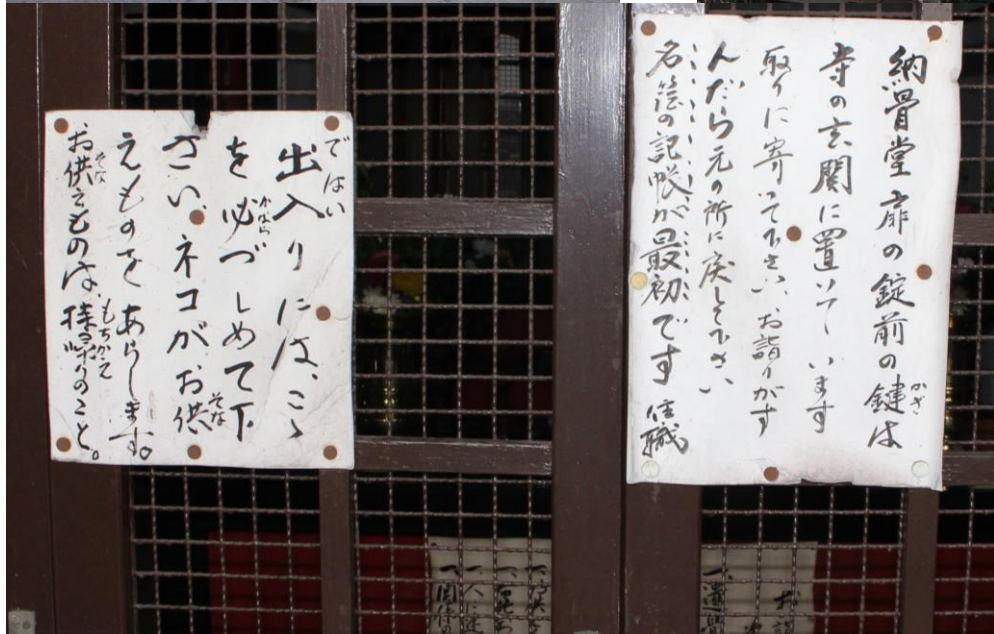 納骨堂扉の錠前の鍵は
かぎ
寺の玄関に置いています
取りに寄って下さい、お詣りがす
んだら元の所に戻して下さい、
名簿の記帳が最初です 住職
ではい
出入りには、こゝ
かなら
を必づしめて下
さい、ネコがお供
そな
えものをあらします。
もちかえ
お供えものは、持帰りのこと。
そな